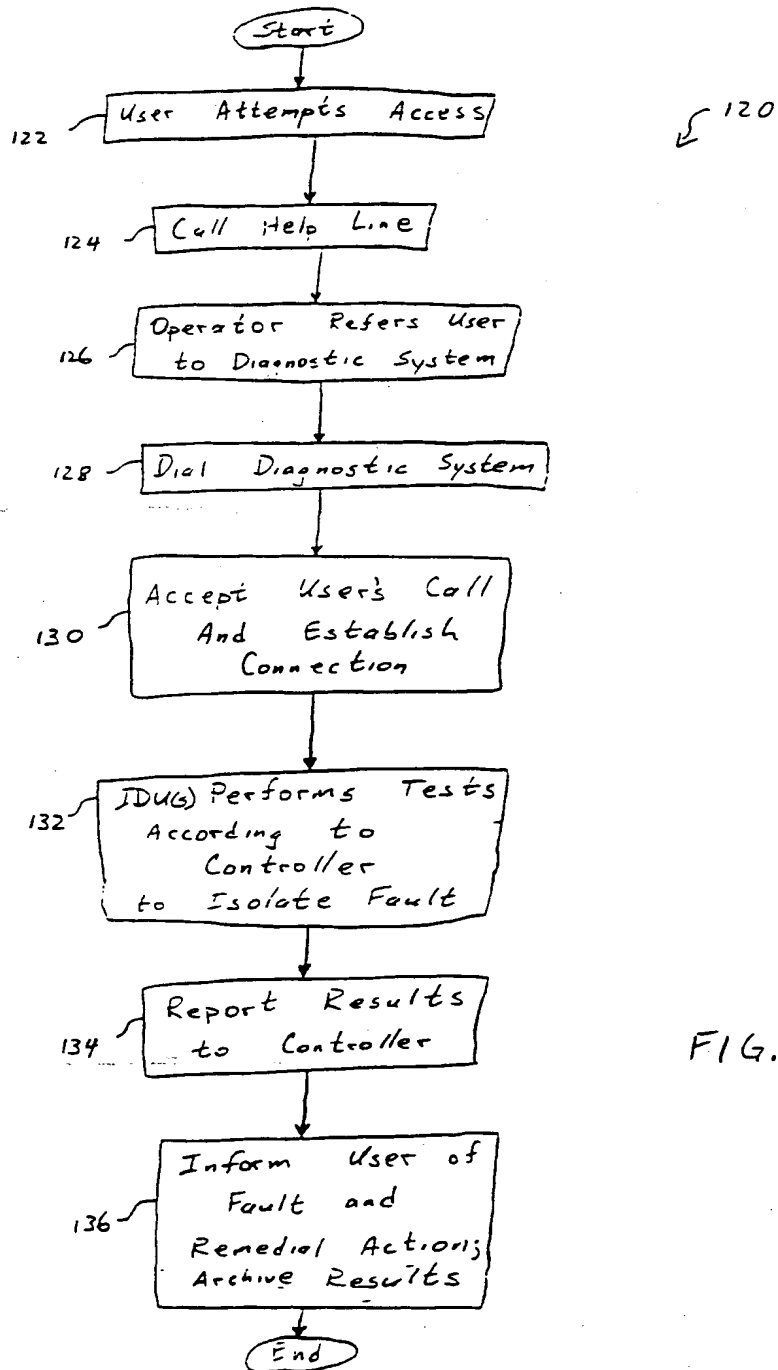 Start
120
User Attempts Access
122
Call Help Line
124
Operator Refers User
to Diagnostic System
126
Dial Diagnostic System
128
Accept User's Call
And Establish
Connection
130
IDU(s) Performs Tests
According to
Controller
to Isolate Fault
132
Report Results
to Controller
134
FIG.
Inform User of
Fault and
Remedial Action;
Archive Results
136
End